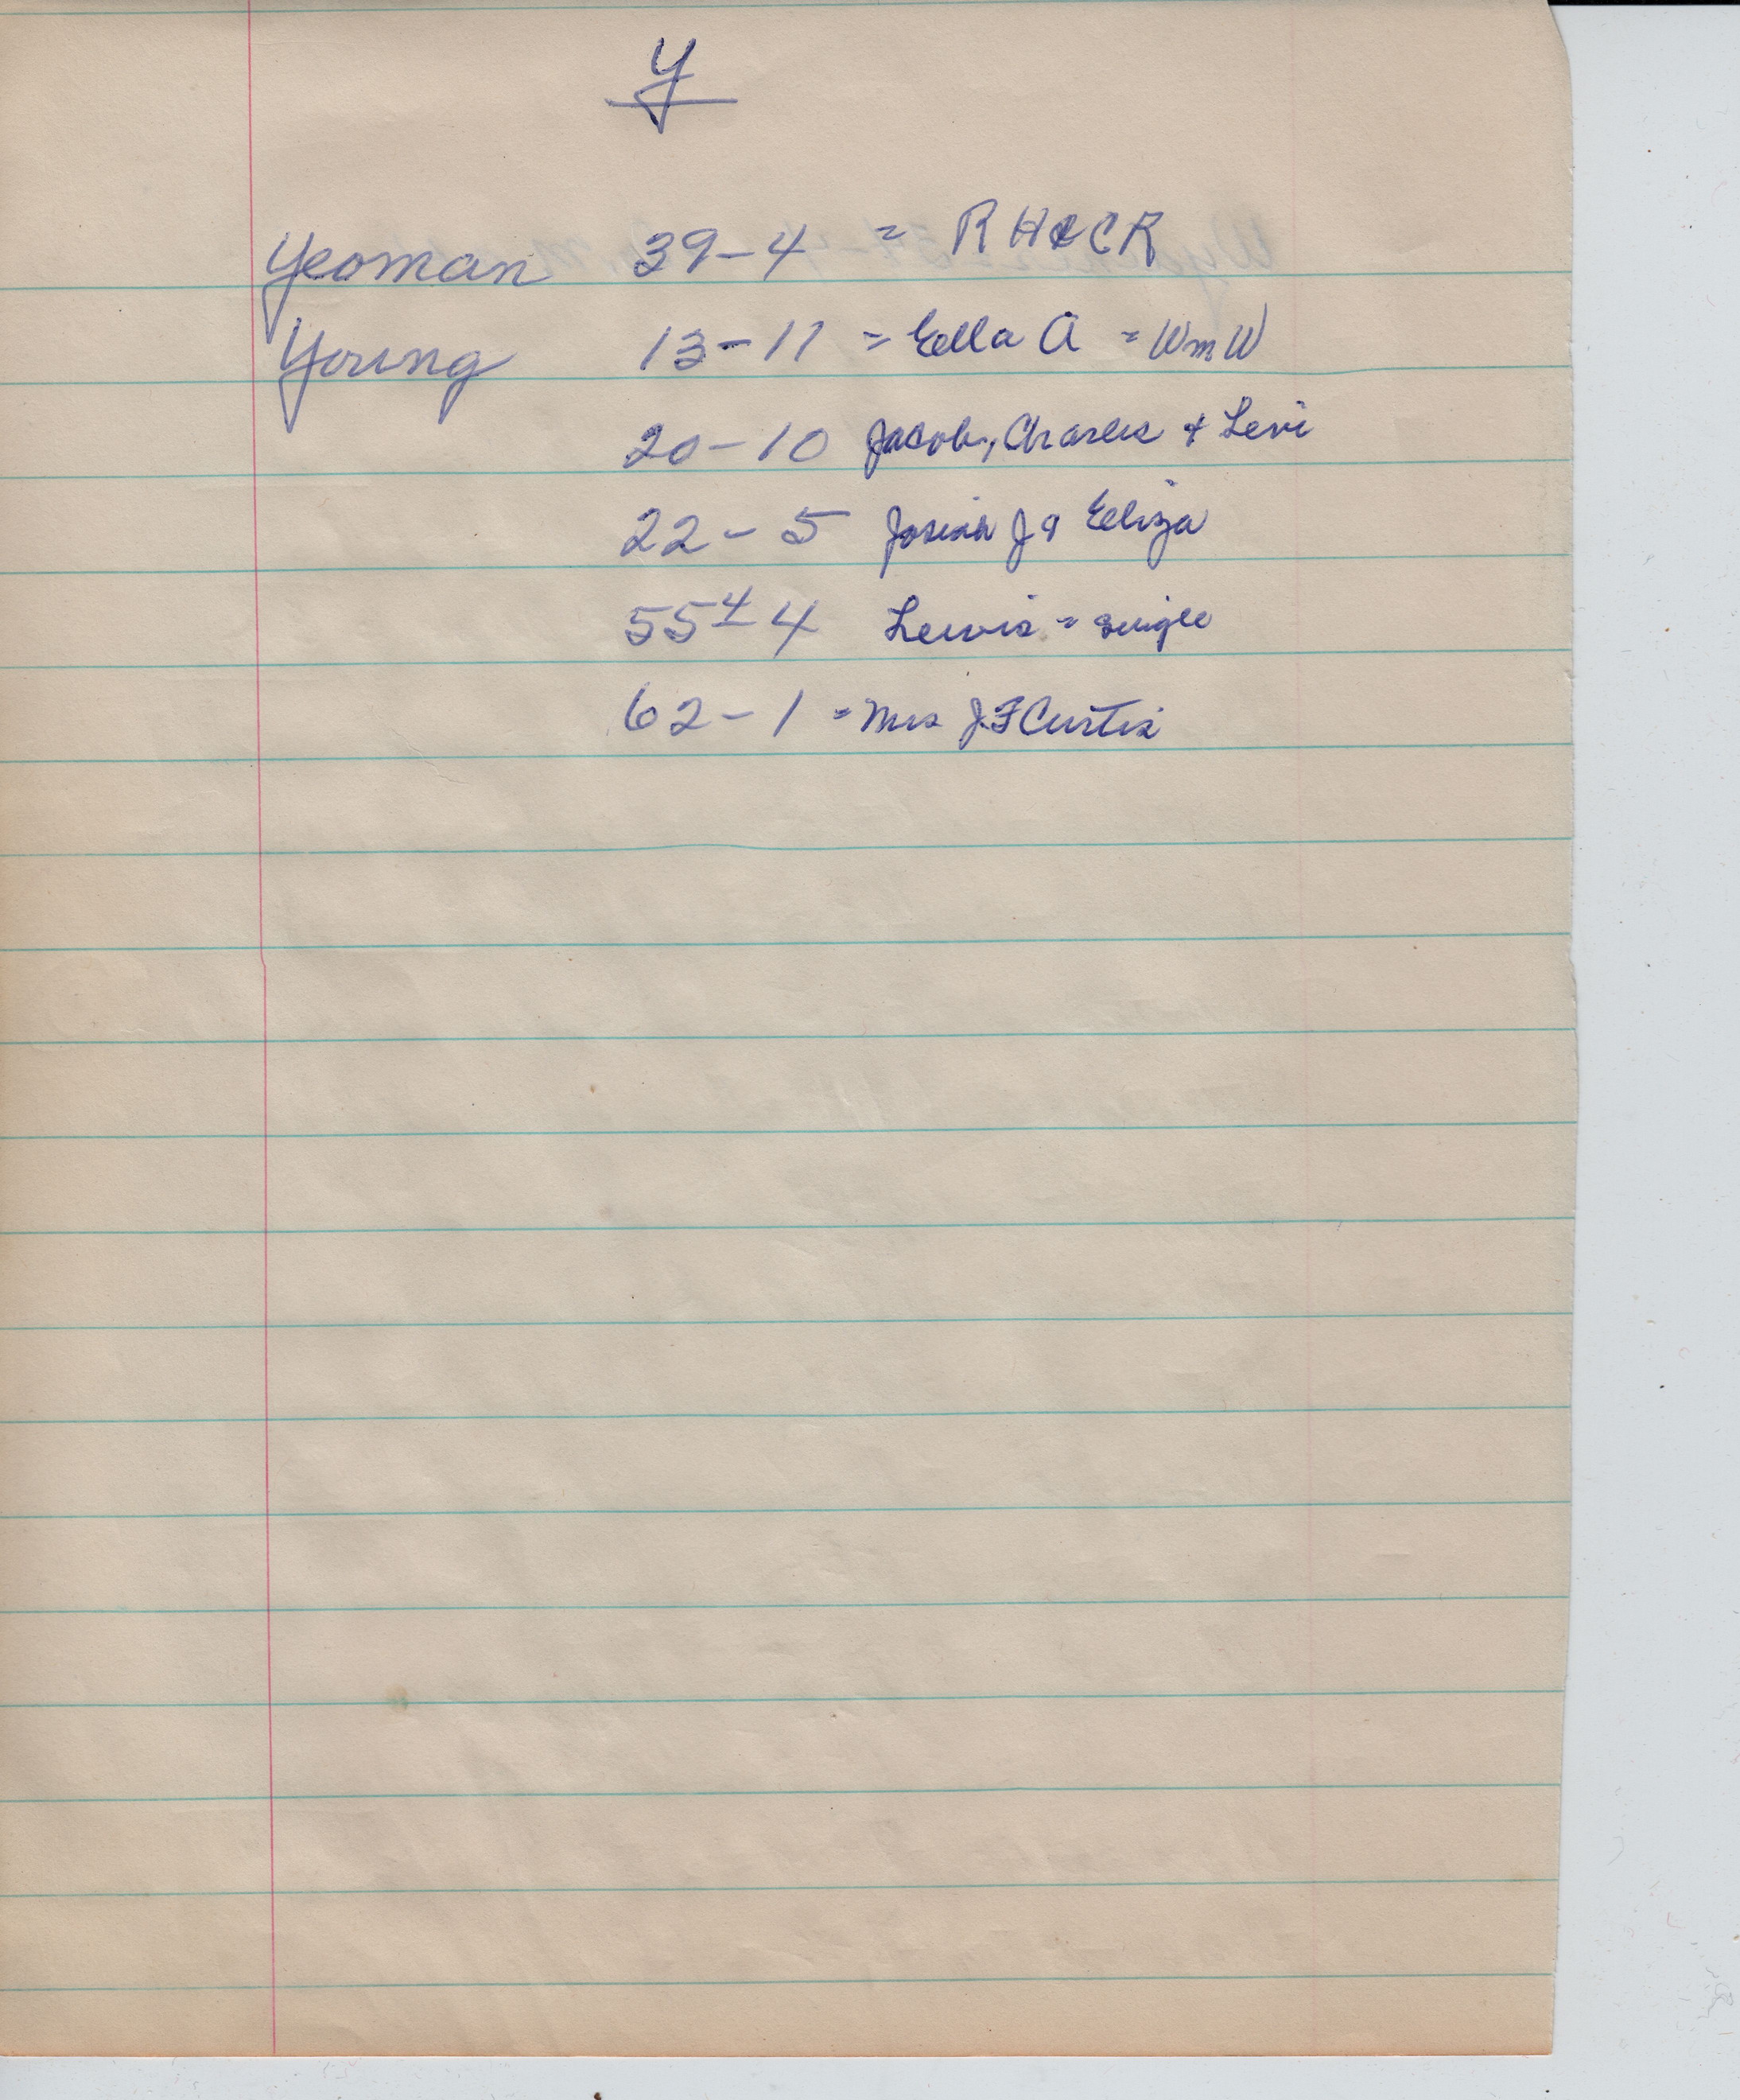 Y
Yeoman 39-4 = R H & C R
Young 13-11 = Ella A = Wm W
20-10 Jacob, Charles & Levi
22-5 Josiah J & Eliza
55-4 4 Lewis = single
62-1 = Mrs J.F Curtis